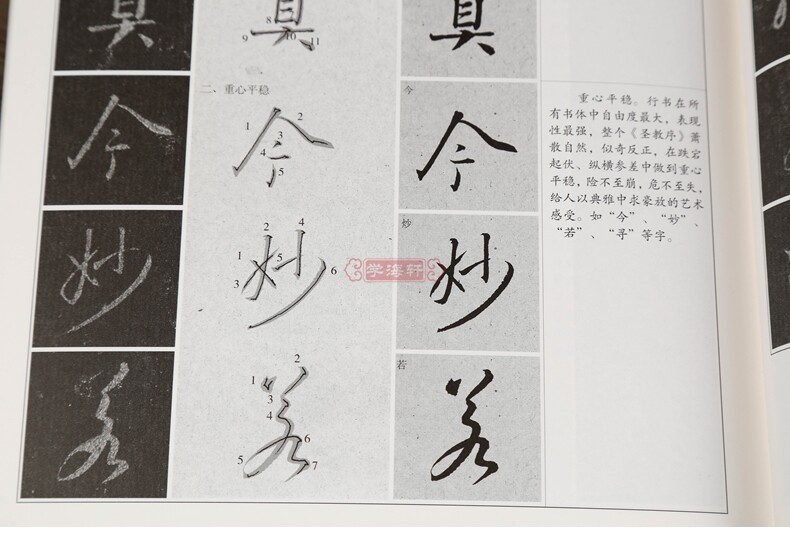 真
8
9
10
11
真
二、重心平稳
今
今
1
2
3
4
5
今
今
妙
妙
1
2
3
4
5
6
妙
妙
学海轩
若
若
1
2
3
4
5
6
7
若
若
重心平稳。行书在所
有书体中自由度最大，表现
性最强，整个《圣教序》萧
散自然，似奇反正，在跌宕
起伏、纵横参差中做到重心
平稳，险不至崩，危不至失，
给人以典雅中求豪放的艺术
感受。如“今”、“妙”、
“若”、“寻”等字。